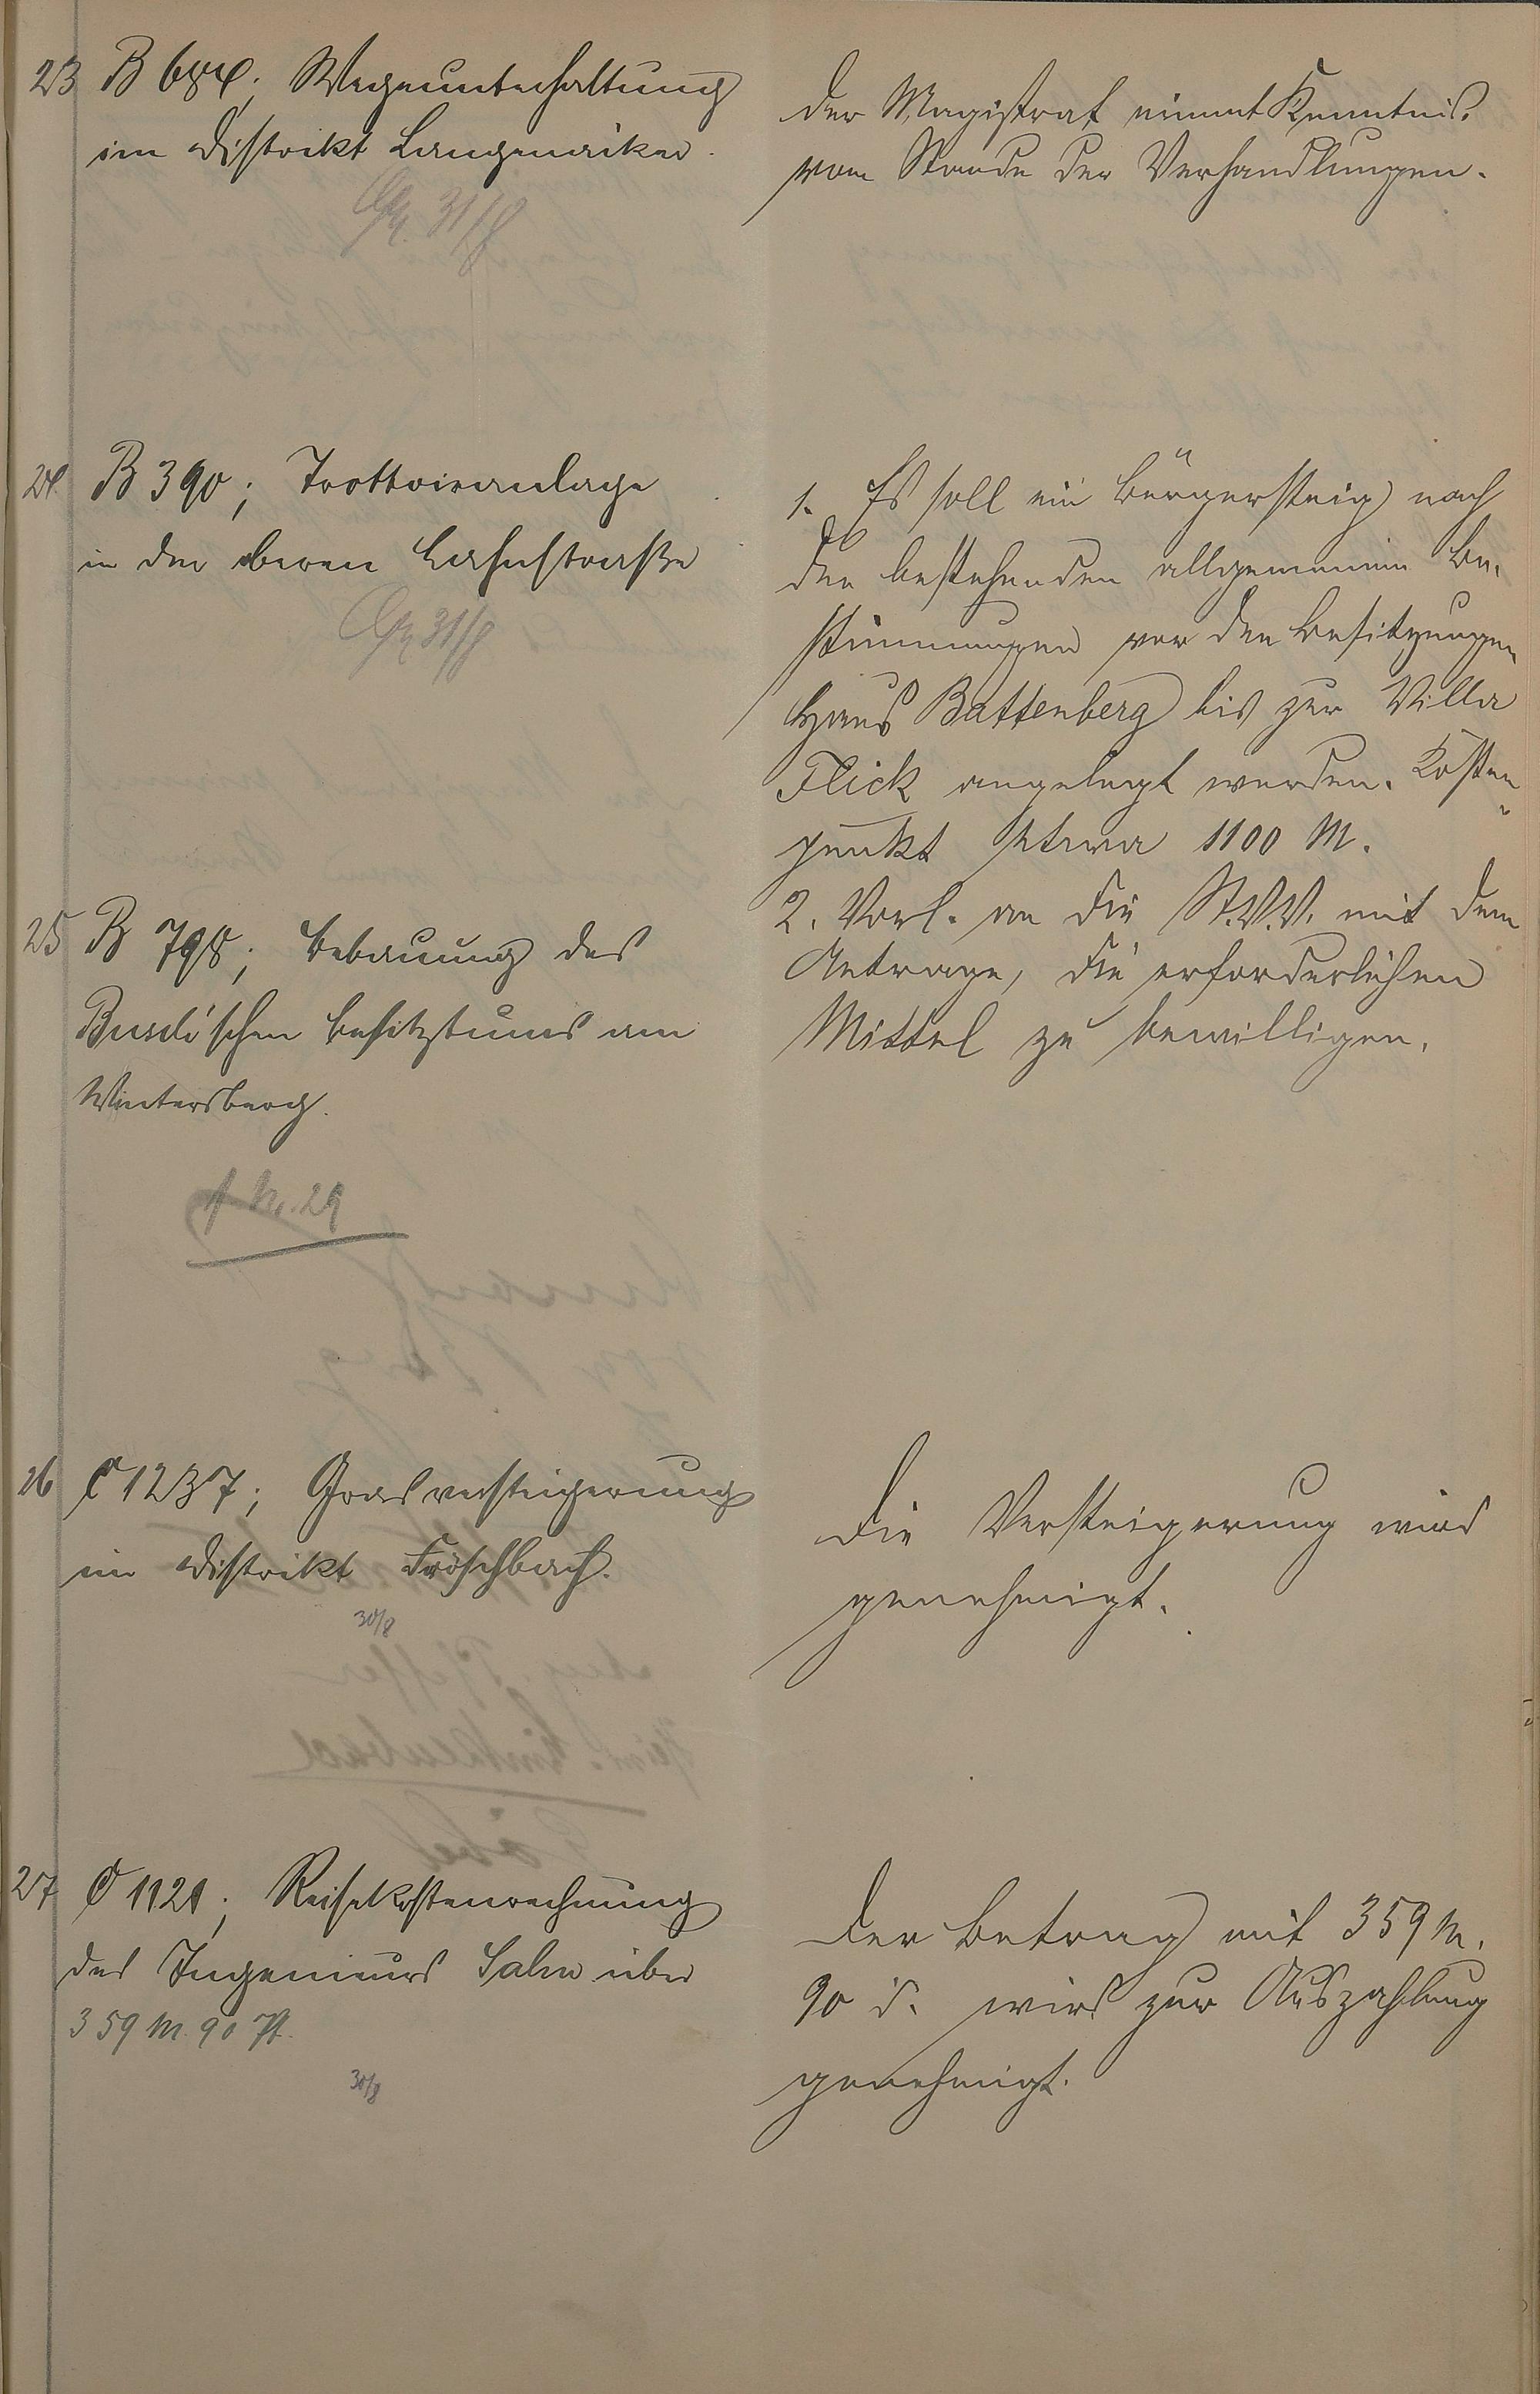 23 B 684; Wegeunterhaltung
im Distrikt Langenaiker.
31/8
Der Magistrat nimmt Kenntnis
vom Stande der Verhandlungen.
24. B 390; Trottoiranlage
in der oberen Lahnstraße
31/8
1. Es soll ein Bürgersteig nach
den bestehenden allgemeinen Be-
stimmungen vor den Besitzungen
Haus Battenberg bis zur Villa
Flick angelegt werden. Kosten-
punkt etwa 1100 M.
2. Vorl. an die St.V.V. mit dem
Antrage, die erforderlichen
Mittel zu bewilligen.
25 B 798; Bebauung des
Busch'schen Besitztums am
Wintersberg.
f. No. 29
26 C 1237; Grasversteigerung
im Distrikt Fröschbach.
30/8
Die Versteigerung wird
genehmigt.
27 C 1121; Reisekostenrechnung
des Ingenieurs Salm über
359 M. 90 Pf.
30/8
Der Betrag mit 359 M.
90 d. wird zur Auszahlung
genehmigt.